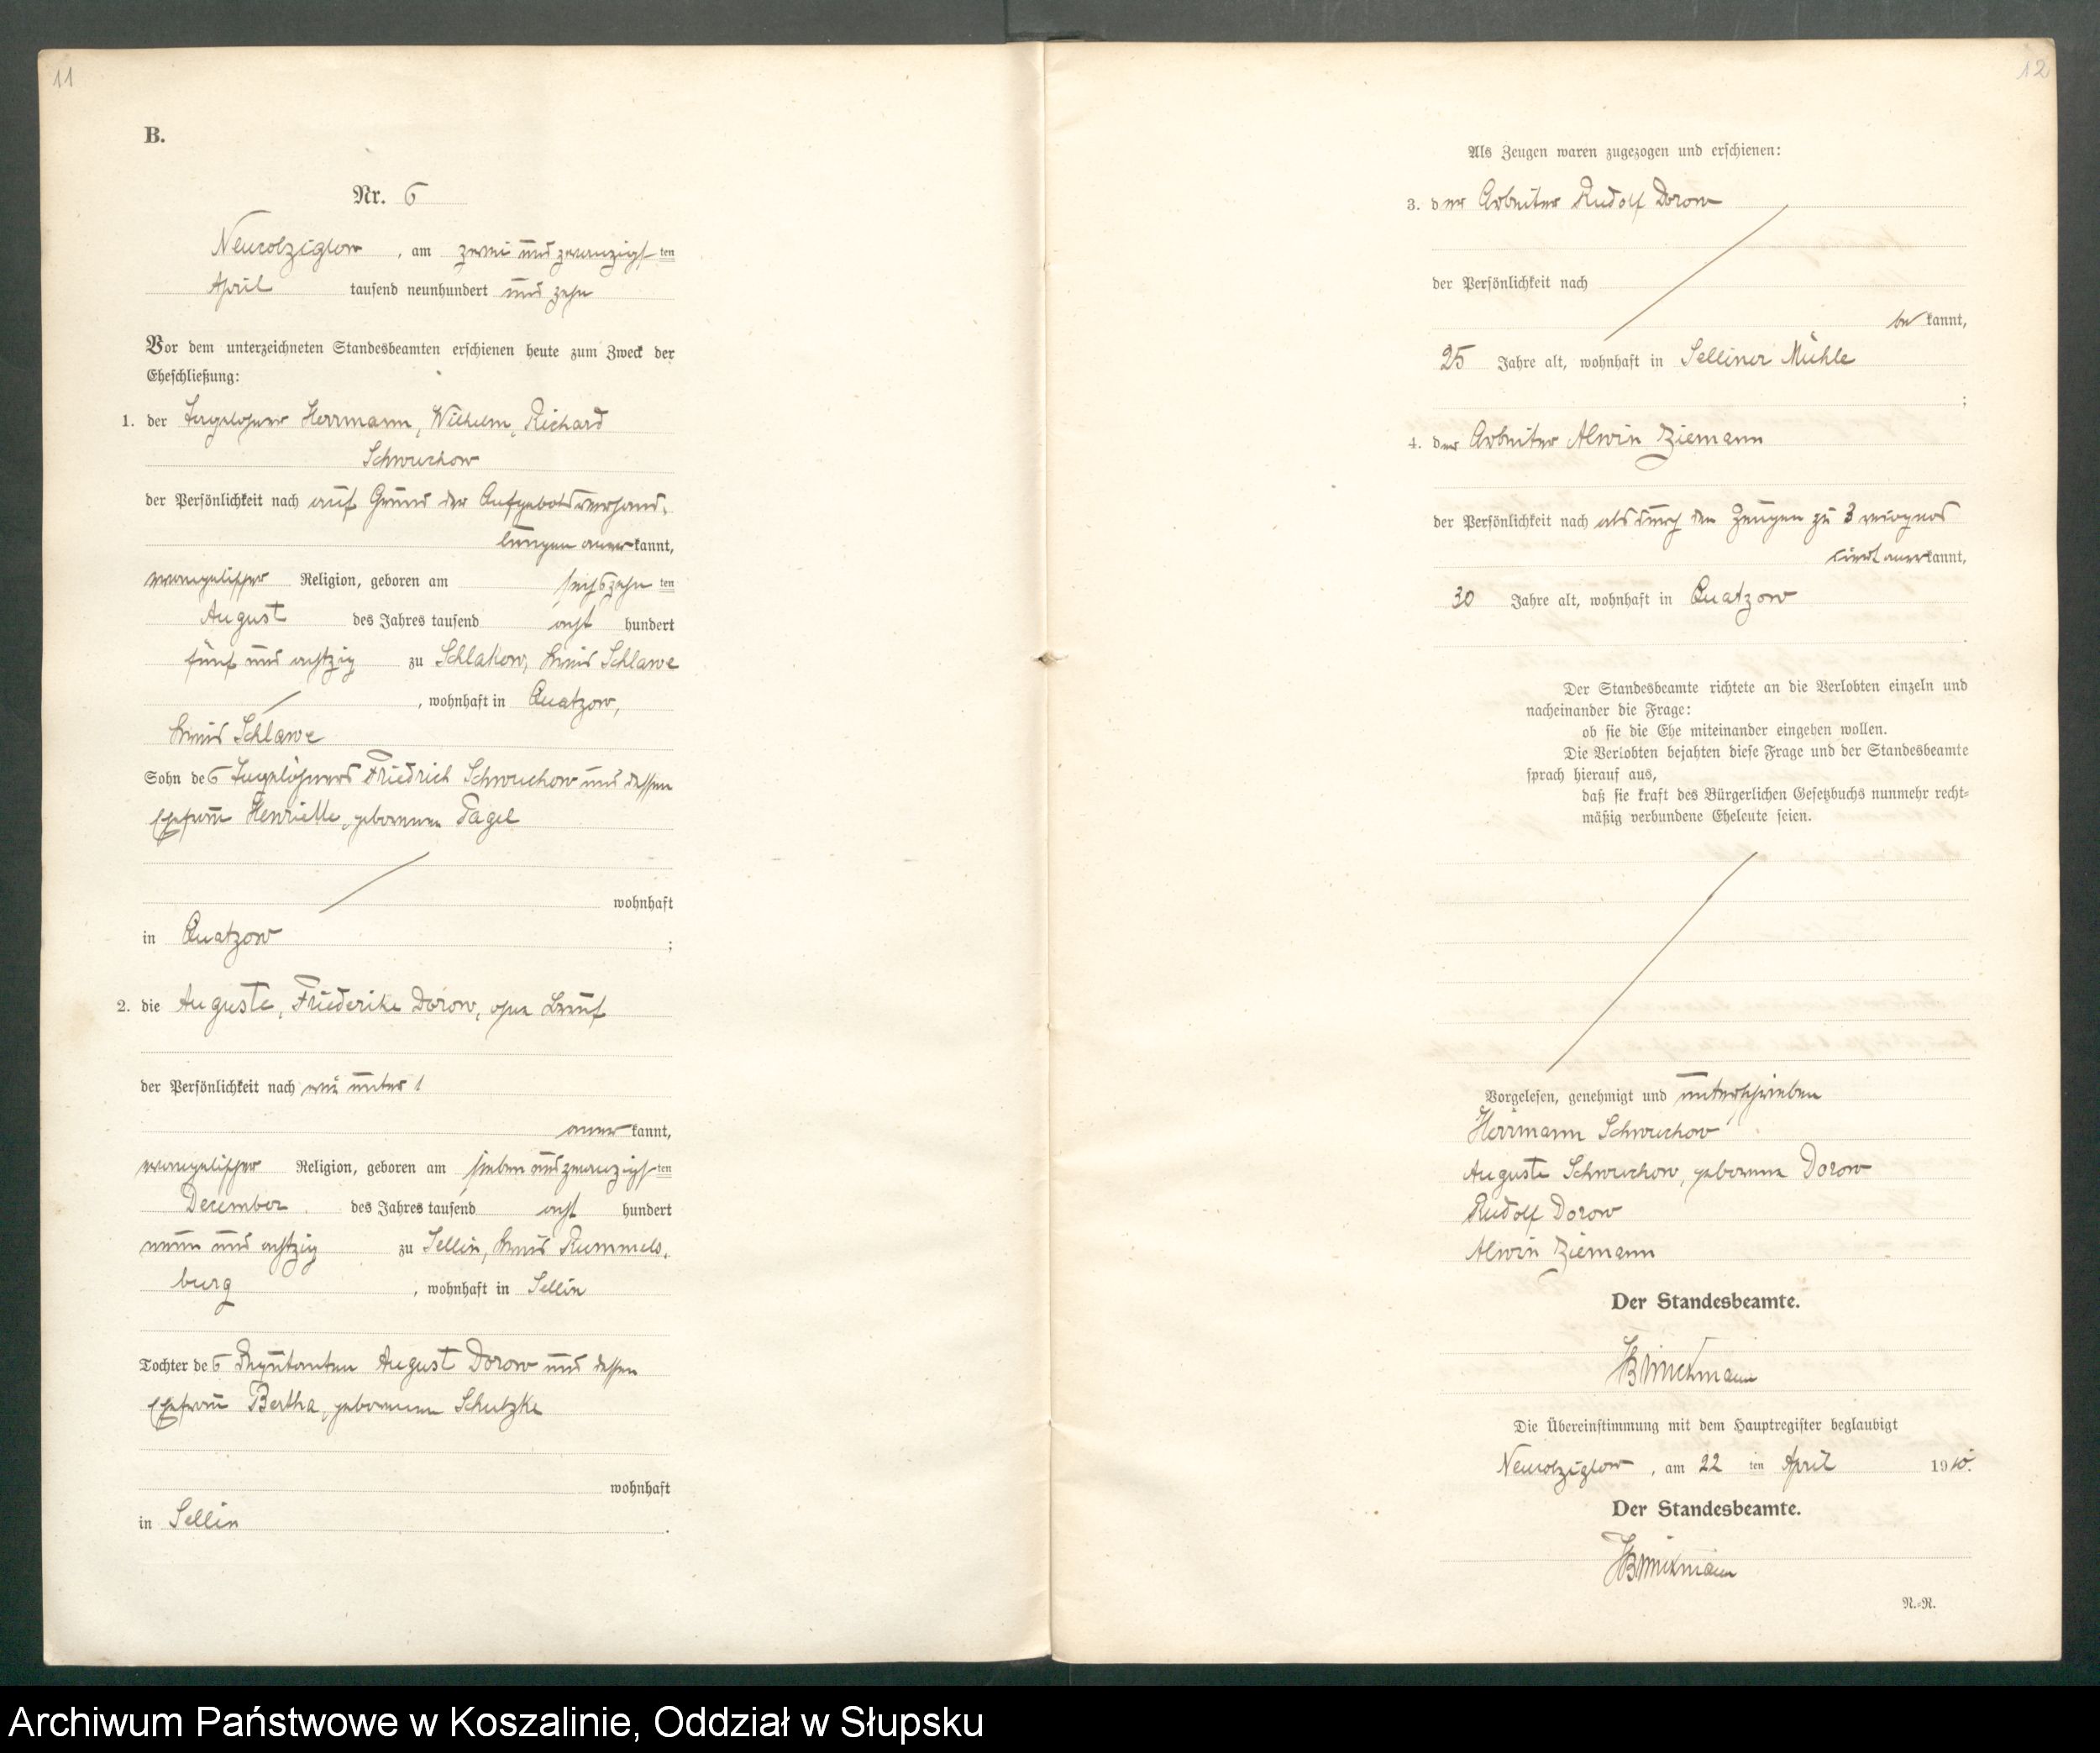 11
B.
Nr. 6
Neukolziglow, am zwei und zwanzigsten
April tausend neunhundert und zehn
Vor dem unterzeichneten Standesbeamten erschienen heute zum Zweck der
Eheschließung:
1. der Tagelöhner Herrmann, Wilhelm, Richard
Schwuchow
der Persönlichkeit nach auf Grund der Aufgebotsverhand-
lungen anerkannt,
evangelischer Religion, geboren am sechszehnten
August des Jahres tausend acht hundert
fünf und achtzig zu Schlakow, Kreis Schlawe
, wohnhaft in Quatzow,
Kreis Schlawe
Sohn des Tagelöhners Friedrich Schwuchow und dessen
Ehefrau Henriette, geborenen Pagel
wohnhaft
in Quatzow ;
2. die Auguste, Friederike Dorow, ohne Beruf
der Persönlichkeit nach wie unter 1
anerkannt,
evangelischer Religion, geboren am sieben und zwanzigsten
December des Jahres tausend acht hundert
neun und achtzig zu Sellin, Kreis Rummels-
burg , wohnhaft in Sellin
Tochter des Deputanten August Dorow und dessen
Ehefrau Bertha, geborenen Schulzke
wohnhaft
in Sellin .
12
Als Zeugen waren zugezogen und erschienen:
3. der Arbeiter Rudolf Dorow
der Persönlichkeit nach
bekannt,
25 Jahre alt, wohnhaft in Selliner Mühle
;
4. der Arbeiter Alwin Ziemann
der Persönlichkeit nach als durch den Zeugen zu 3 recognos
ciert anerkannt,
30 Jahre alt, wohnhaft in Quatzow
.
Der Standesbeamte richtete an die Verlobten einzeln und
nacheinander die Frage:
ob sie die Ehe miteinander eingehen wollen.
Die Verlobten bejahten diese Frage und der Standesbeamte
sprach hierauf aus,
daß sie kraft des Bürgerlichen Gesetzbuchs nunmehr recht-
mäßig verbundene Eheleute seien.
Vorgelesen, genehmigt und unterschrieben
Herrmann Schwuchow
Auguste Schwuchow, geborene Dorow
Rudolf Dorow
Alwin Ziemann
Der Standesbeamte.
Brinkmann
Die Übereinstimmung mit dem Hauptregister beglaubigt
Neukolziglow, am 22 ten April 1910.
Der Standesbeamte.
Brinkmann
N.-N.
Archiwum Państwowe w Koszalinie, Oddział w Słupsku